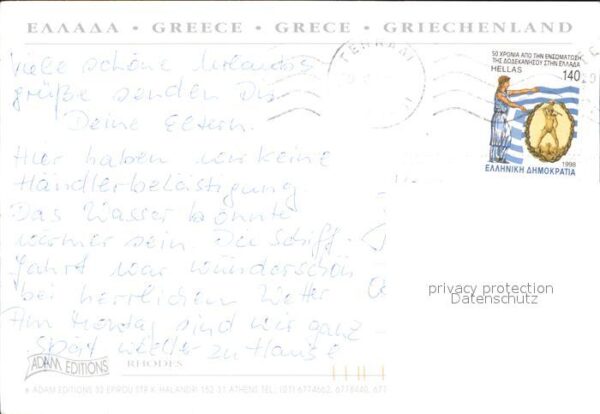 ΕΛΛΑΔΑ • GREECE • GRÈCE • GRIECHENLAND
50 ΧΡΟΝΙΑ ΑΠΟ ΤΗΝ ΕΝΣΩΜΑΤΩΣΗ
ΤΗΣ ΔΩΔΕΚΑΝΗΣΟΥ ΣΤΗΝ ΕΛΛΑΔΑ
HELLAS 140
1998
ΕΛΛΗΝΙΚΗ ΔΗΜΟΚΡΑΤΙΑ
Viele schöne Urlaubs
grüße senden Dir
Deine Eltern.
Hier haben wir keine
Händlerbelästigung.
Das Wasser könnte
wärmer sein. Die Schiff-
fahrt war wunderschön
bei herrlichem Wetter
Am Montag sind wir ganz
spät wieder zu Hause
privacy protection
Datenschutz
ADAM EDITIONS
RHODES
© ADAM EDITIONS 32 EPIROU STR K. HALANDRI 152 31 ATHENS TEL: (01) 6774662, 6778440,